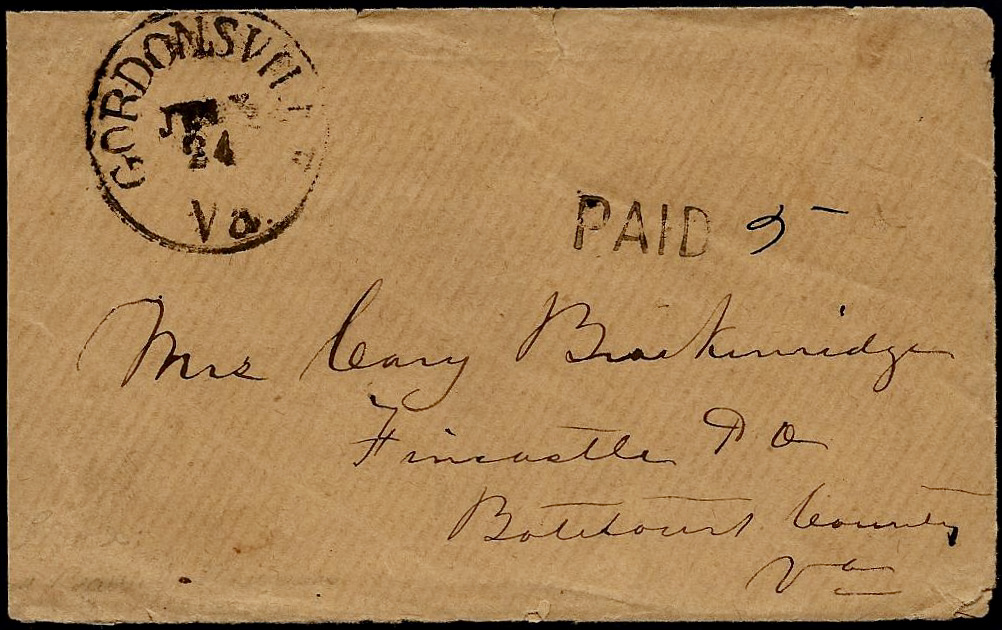 GORDONSVILLE
24
Va.
PAID 5
Mrs Cary Breckenridge
Fincastle P O
Botetourt County
Va